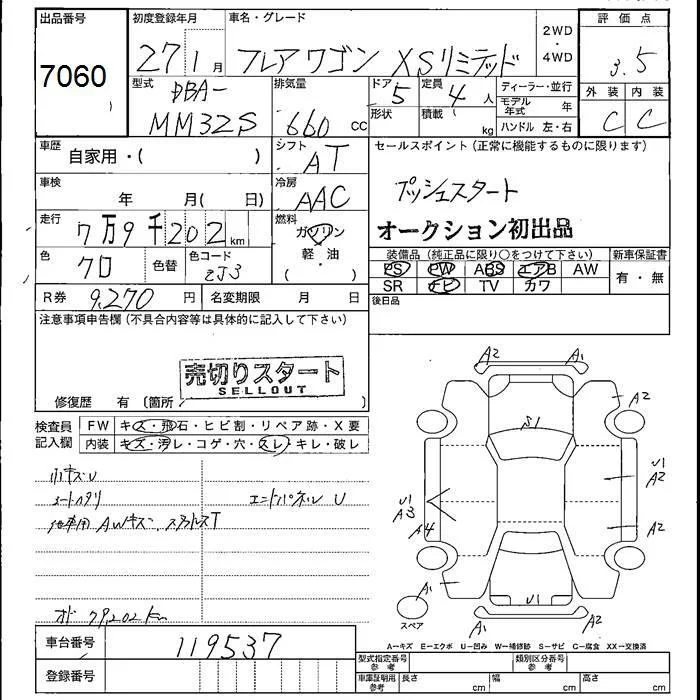 出品番号
7060
初度登録年月
27 1 月
車名・グレード
フレアワゴン XSリミテッド
2WD
・
4WD
評価点
3.5
外装 内装
C C
型式
DBA-
MM32S
排気量
660 cc
ドア
5
定員
4 人
形状
積載
kg
ディーラー・並行
モデル年式 年
ハンドル 左・右
車歴
自家用・( )
シフト
AT
セールスポイント (正常に機能するものに限ります)
プッシュスタート
オークション初出品
車検
年 月( 日)
冷房
AAC
走行
7万9千202 km
燃料
ガソリン
軽・油
・
( )
色
クロ
色替
色コード
ZJ3
装備品 (純正品に限り○をつけて下さい)
新車保証書
PS PW ABS エアB AW
SR ナビ TV カワ
有・無
R券
9,270 円
名変期限 月 日
後日品
注意事項申告欄 (不具合内容等は具体的に記入して下さい)
売切りスタート
SELLOUT
修復歴 有 (箇所 )
検査員
記入欄
FW キズ・飛石・ヒビ割・リペア跡・X要
内装 キズ・汚レ・コゲ・穴・スレ・キレ・破レ
小キズU
シートヘタリ
エンドパネル U
他車用 AWキズ スタッドレスT
オド 79,202 km
A2 A1
A2
S1
U1
A2
U1
A3
A4
A2
A1
U1
A1 A2
スペア
車台番号
119537
登録番号
A=キズ E=エクボ U=凹み W=補修跡 S=サビ C=腐食 XX=交換済
型式指定番号
参考
類別区分番号
参考
車庫証明用
参考
長さ cm 幅 cm 高さ cm